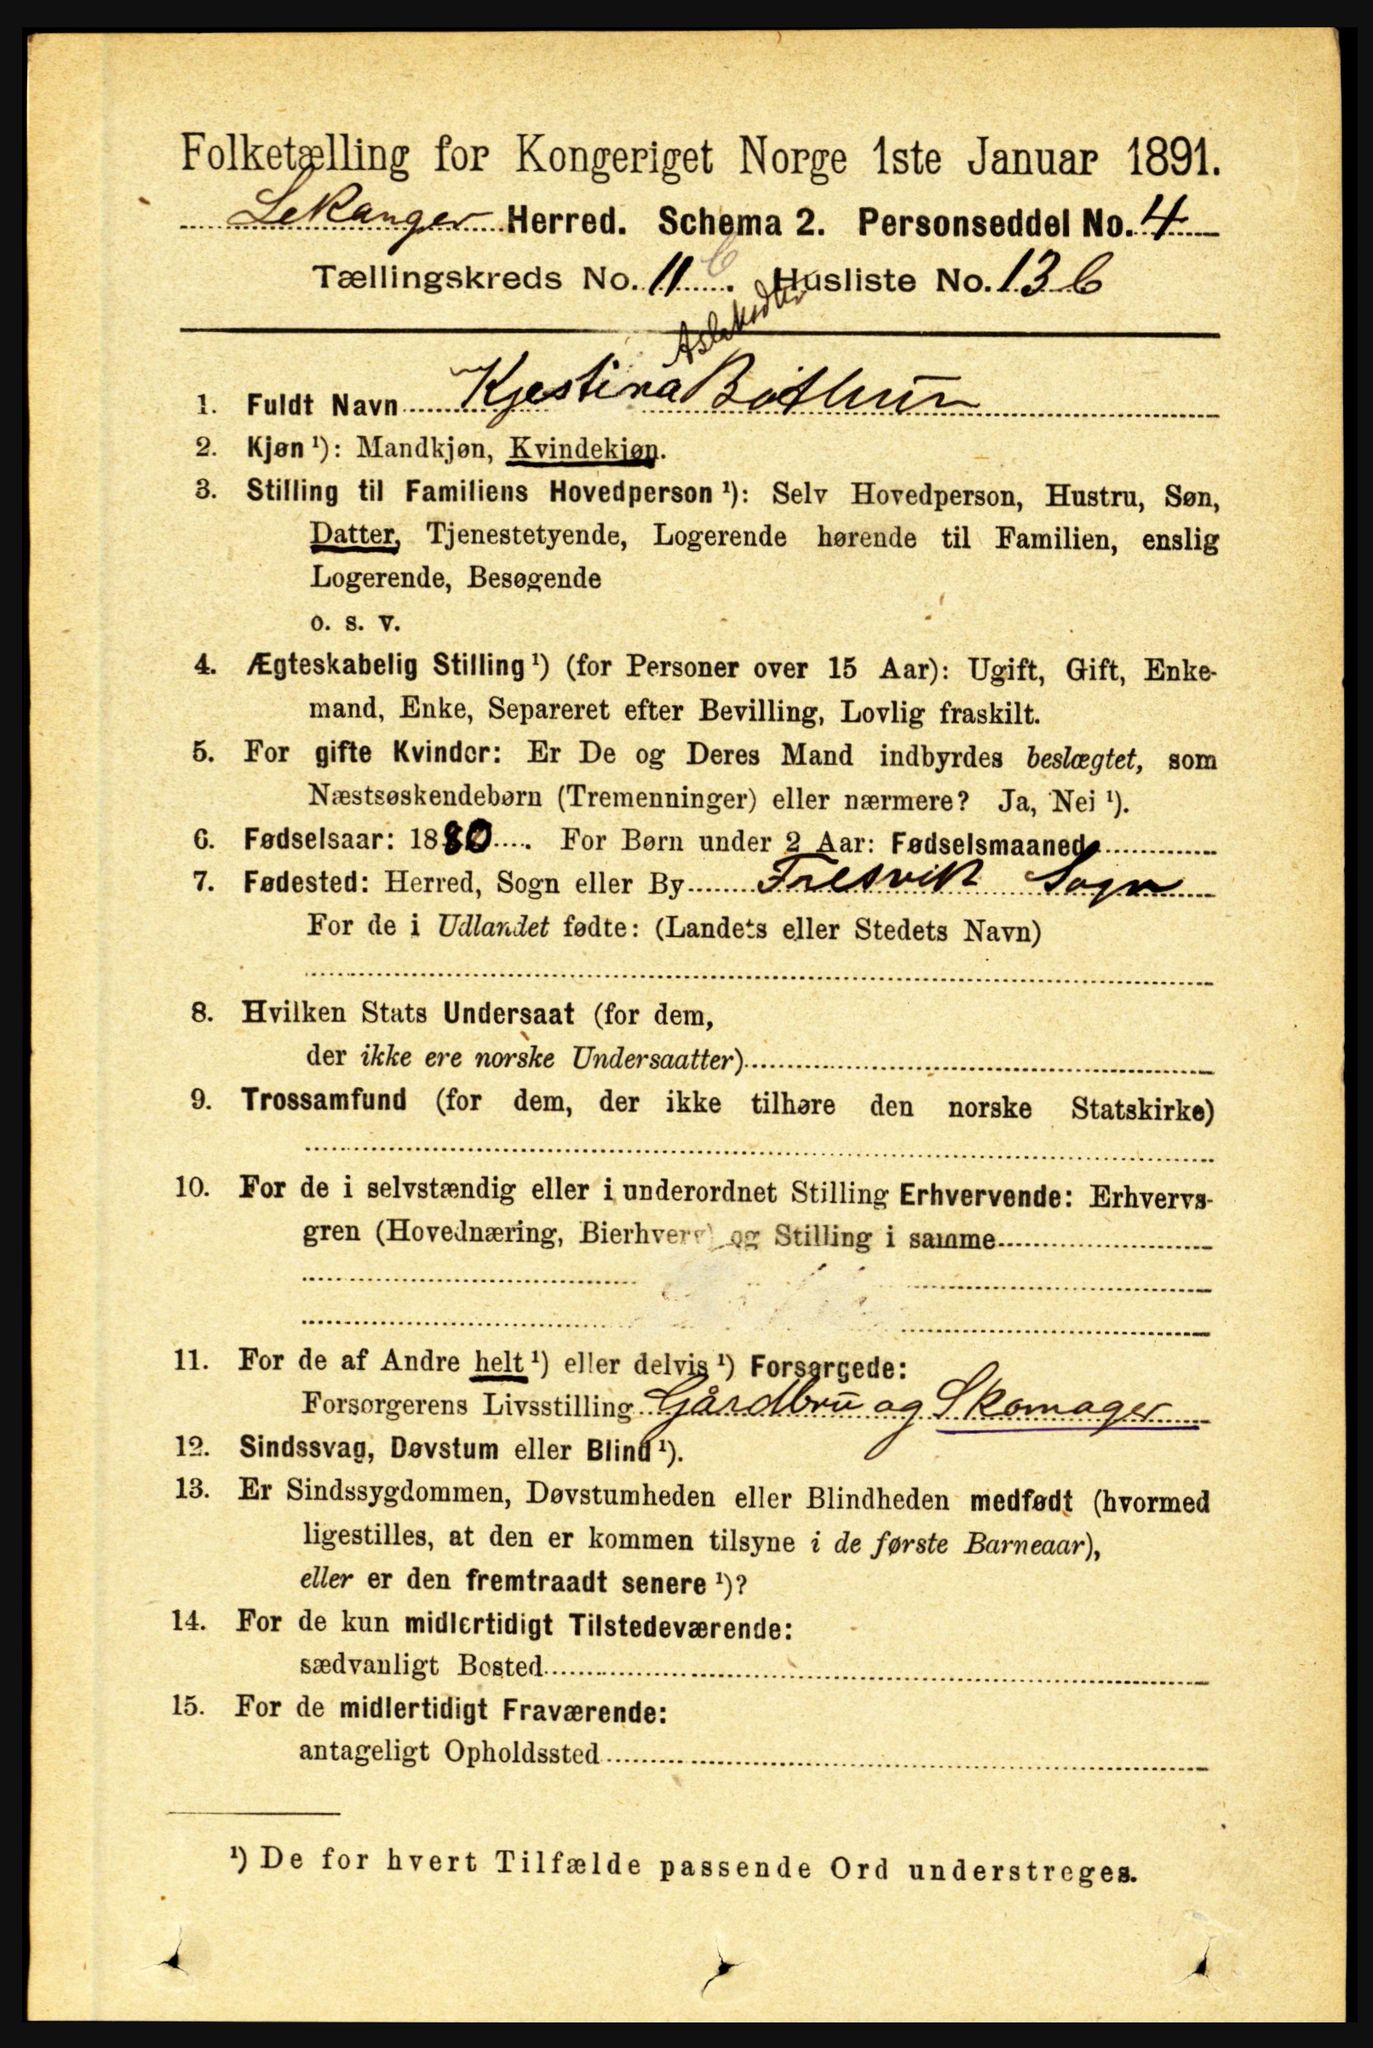 Folketælling for Kongeriget Norge 1ste Januar 1891.
Lekanger Herred. Schema 2. Personseddel No. 4
Tællingskreds No. 11 6. Husliste No. 136
Aslaksdtr
1. Fuldt Navn Kjestina Bøthun
2. Kjøn ¹): Mandkjøn, Kvindekjøn.
3. Stilling til Familiens Hovedperson ¹): Selv Hovedperson, Hustru, Søn,
Datter, Tjenestetyende, Logerende hørende til Familien, enslig
Logerende, Besøgende
o. s. v.
4. Ægteskabelig Stilling ¹) (for Personer over 15 Aar): Ugift, Gift, Enke-
mand, Enke, Separeret efter Bevilling, Lovlig fraskilt.
5. For gifte Kvinder: Er De og Deres Mand indbyrdes beslægtet, som
Næstsøskendebørn (Tremenninger) eller nærmere? Ja, Nei ¹).
6. Fødselsaar: 1880. For Børn under 2 Aar: Fødselsmaaned
7. Fødested: Herred, Sogn eller By Fresvik Sogn
For de i Udlandet fødte: (Landets eller Stedets Navn)
8. Hvilken Stats Undersaat (for dem,
der ikke ere norske Undersaatter)
9. Trossamfund (for dem, der ikke tilhøre den norske Statskirke)
10. For de i selvstændig eller i underordnet Stilling Erhvervende: Erhvervs-
gren (Hovednæring, Bierhverv) og Stilling i samme
11. For de af Andre helt ¹) eller delvis ¹) Forsørgede:
Forsørgerens Livsstilling Gårdbru og Skomager
12. Sindssvag, Døvstum eller Blind ¹).
13. Er Sindssygdommen, Døvstumheden eller Blindheden medfødt (hvormed
ligestilles, at den er kommen tilsyne i de første Barneaar),
eller er den fremtraadt senere ¹)?
14. For de kun midlertidigt Tilstedeværende:
sædvanligt Bosted
15. For de midlertidigt Fraværende:
antageligt Opholdssted
¹) De for hvert Tilfælde passende Ord understreges.